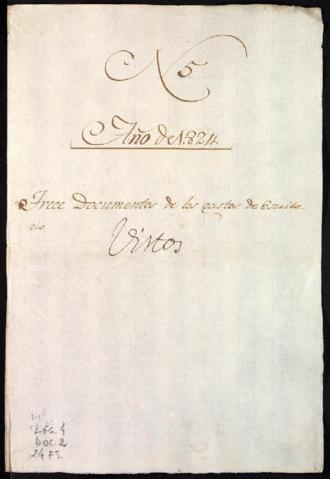 N 5
Año de 1824
Trece Documentos de los gastos de Escrito
rio
Vistos
Leg. 4
DOC. 2
24 FS.